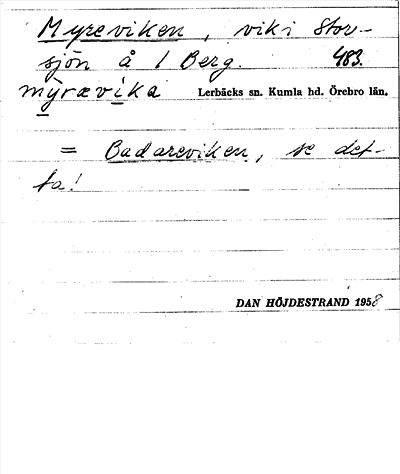 Myreviken, vik i Stor-
sjön å 1 Berg. 483.
mỳrævìka Lerbäcks sn. Kumla hd. Örebro län.
= Badareviken, se det-
ta!
DAN HÖJDESTRAND 1958